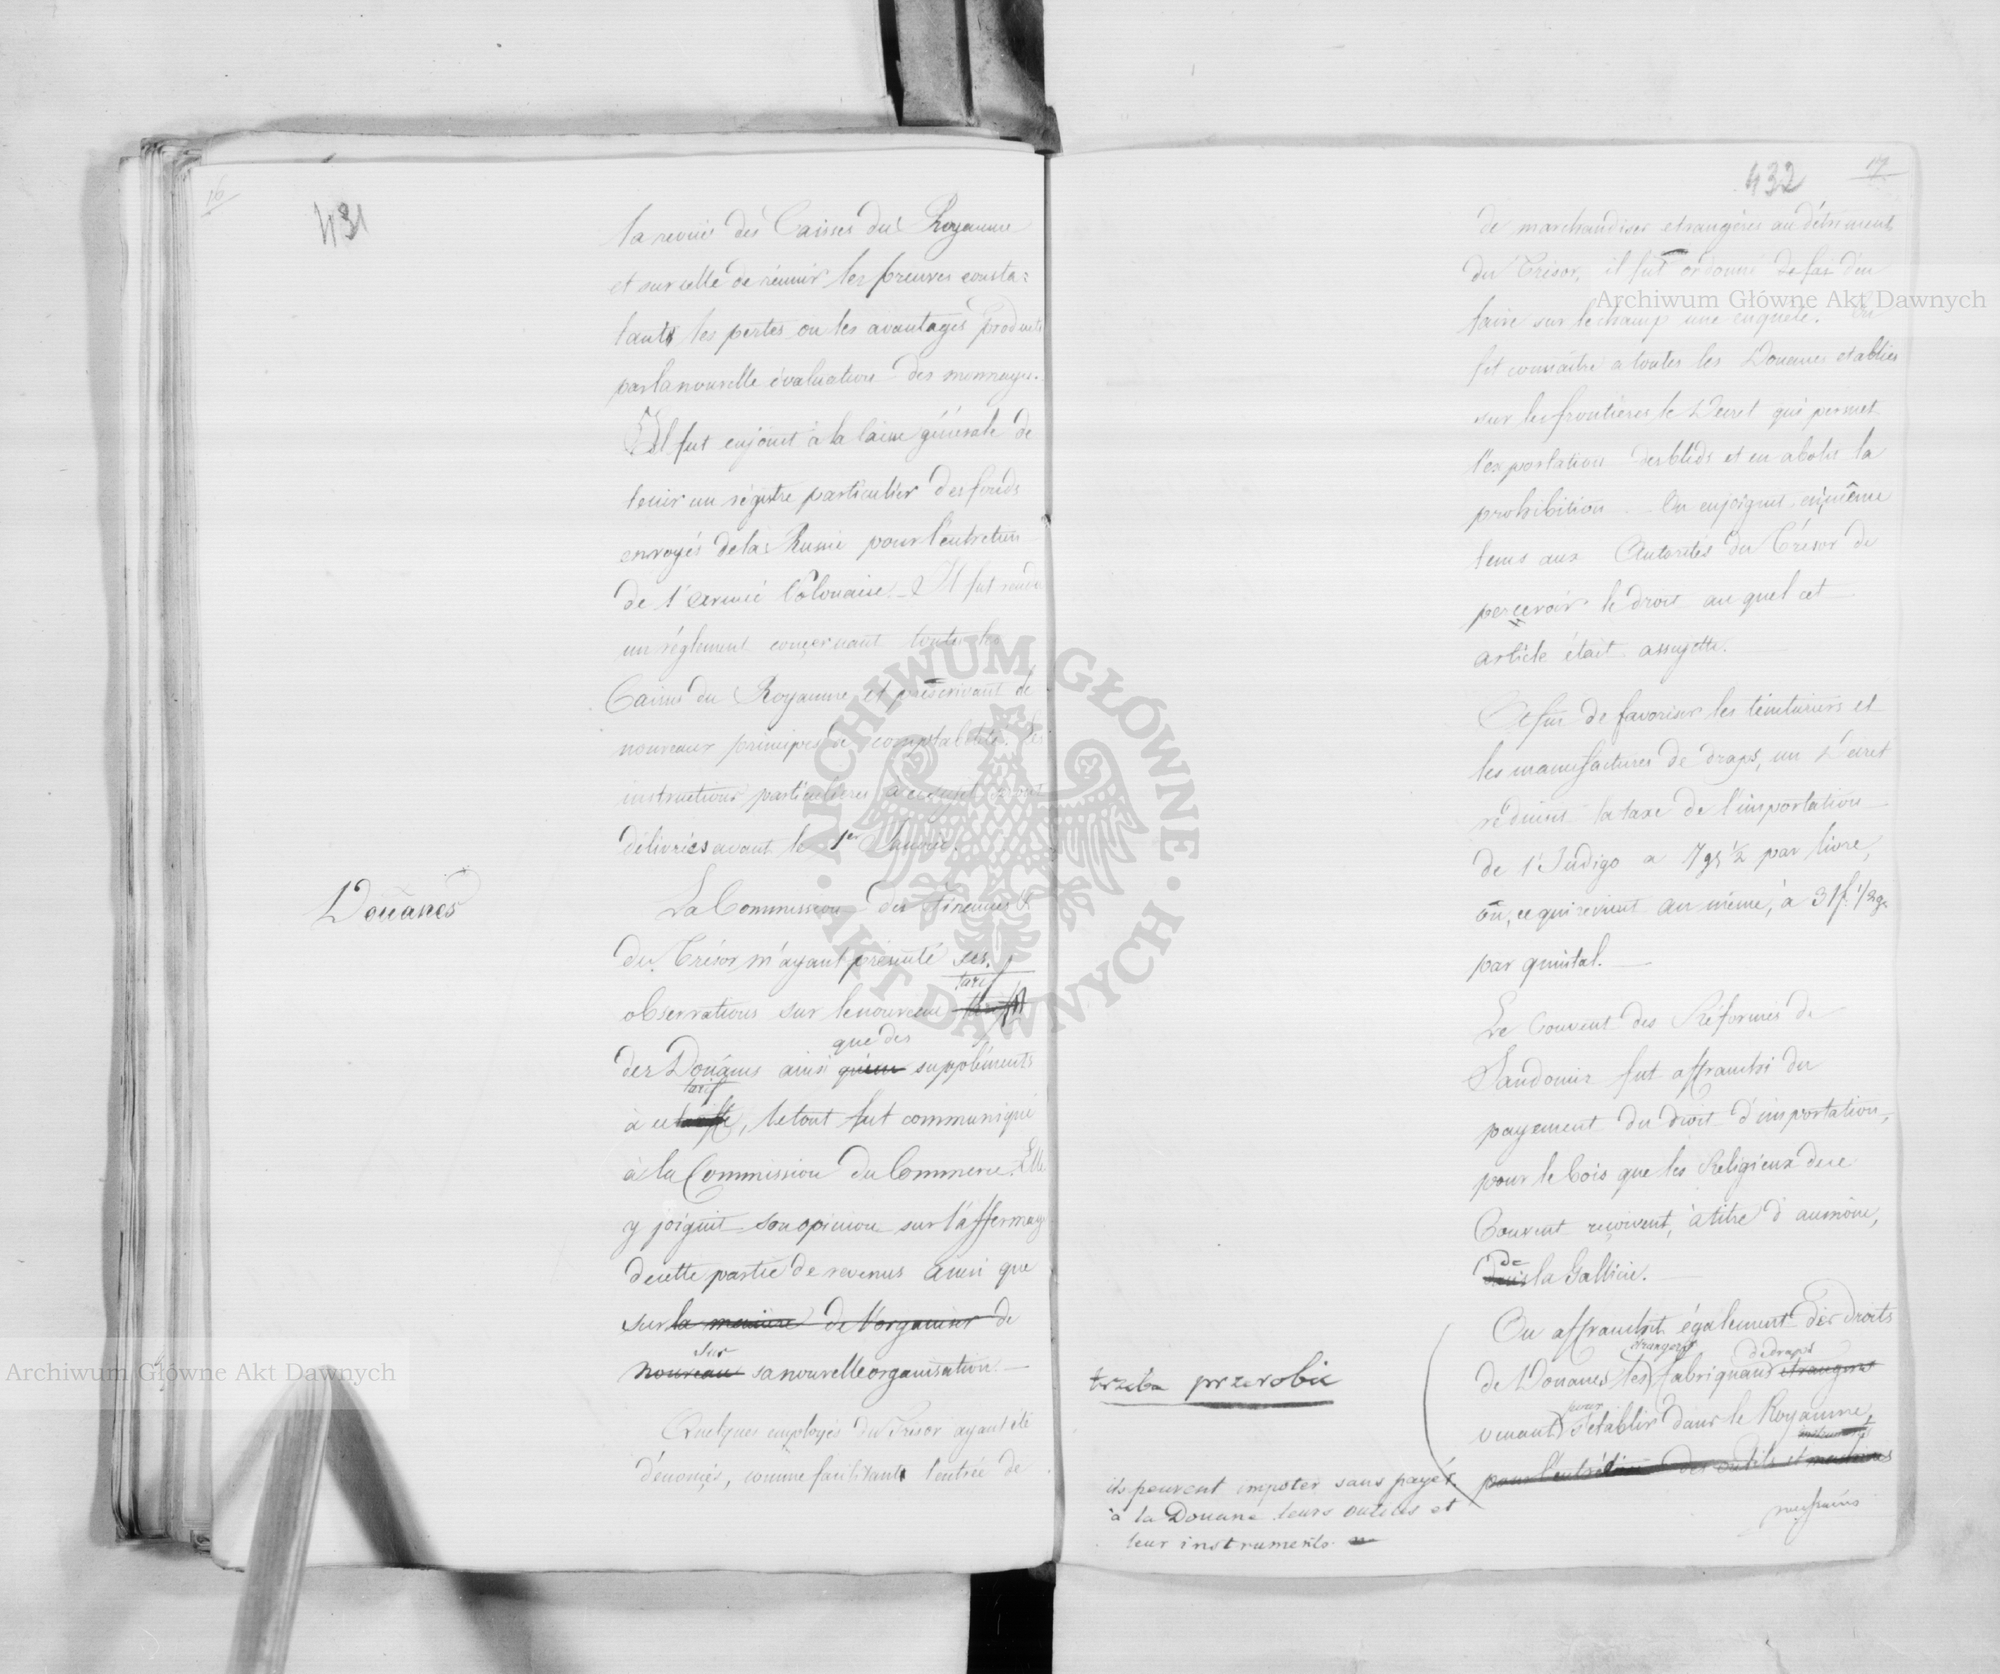 16
431
la revue des Caisses du Royaume
et sur celle de réunir les preuves consta=
tants les pertes ou les avantages produits
par la nouvelle évaluation des monnayes.
Il fut enjoint à la Caisse générale de
tenir un régistre particulier des fonds
envoyés de la Russie pour l'entretien
de l'armée Polonaise. Il fut rendu
un réglement concernant toutes les
Caisses du Royaume et préscrivant de
nouveaux principes de comptabilité. Les
instructions particulieres à ce sujet sont
délivrées avant le 1er Janvier.
Douanes
La Commission des Finances &
du Trésor m'ayant présenté ses
observations sur le nouveau tarif
des Douanes ainsi que des supplements
à ce tarif, le tout fut communiqué
à la Commission du Commerce. Elle
y joignit son opinion sur l'affermage
de cette partie de revenus ainsi que
sur la maniere de l'organiser de
nouveau sur sa nouvelle organisation.
Quelques employés du Trésor ayant été
dénoncés, comme facilitants l'entrée de
432
17
de marchandises etrangères au détriment
du Trésor, il fut ordonné d'en
faire sur le champ une enquete. On
fit connaitre a toutes les Douanes etablies
sur les frontieres le Décret qui permet
l'exportation des bleds et en abolit la
prohibition. On enjoignit en même
tems aux Autorités du Trésor de
percevoir le droit au quel cet
article était assujetti.
Afin de favoriser les teinturiers et
les manufactures de draps, un Décret
réduisit la taxe de l'importation
de l'Indigo a 7 gs ½ par livre,
ou, ce qui revient au même, à 31 f. ½ g.
par quintal.
Le Couvent des Réformés de
Sandomir fut affranchi du
payement du droit d'importation,
pour le bois que les Religieux de ce
Couvent reçoivent, à titre d'aumône,
de la Gallicie.
On affranchit également des droits
de Douanes les étrangers fabriquans de draps etrangers
venant pour s'établir dans le Royaume,
pour l'entrée des outils et instruments
trzeba przerobic
ils peuvent importer sans payér
à la Douane leurs outiles et
leur instruments